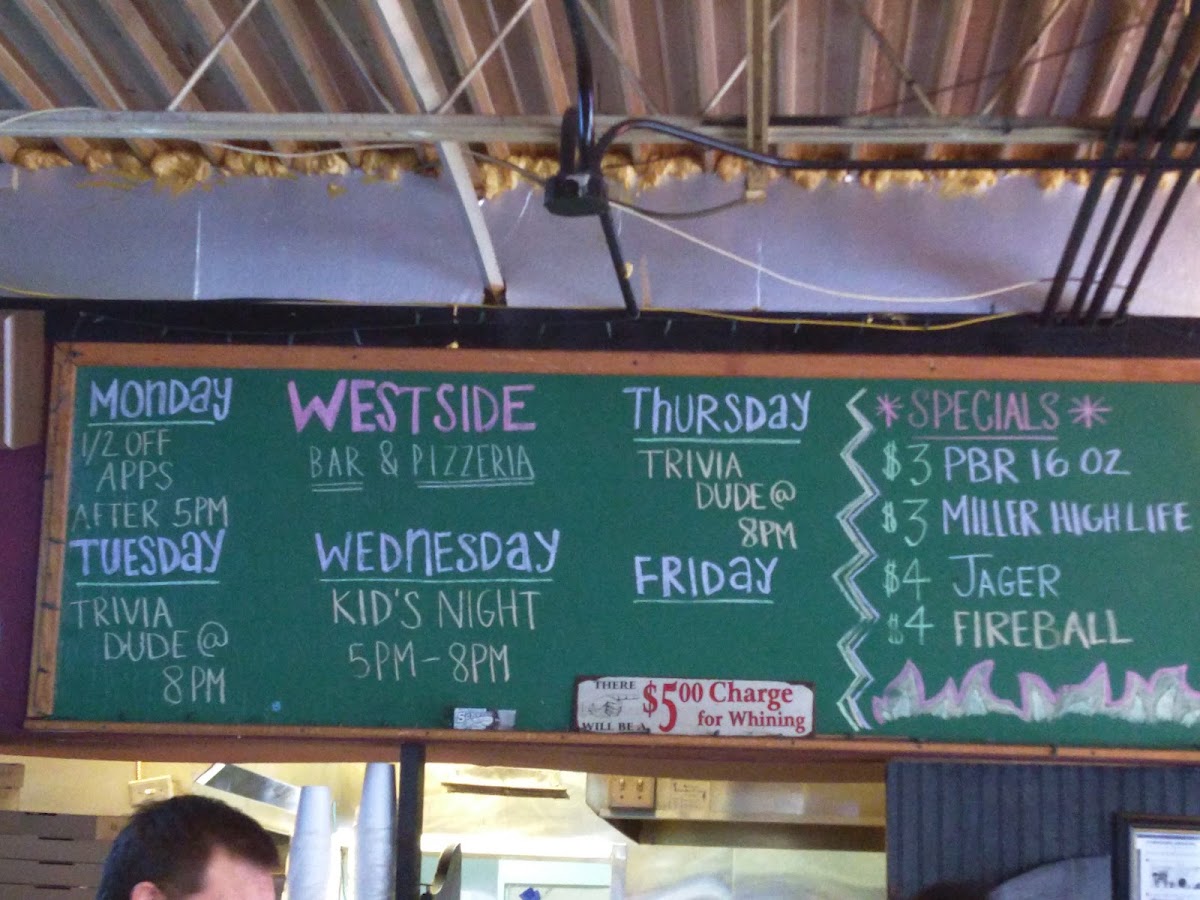 MONDAY
1/2 OFF
APPS
AFTER 5PM
TUESDAY
TRIVIA
DUDE @
8PM
WESTSIDE
BAR & PIZZERIA
WEDNESDAY
KID'S NIGHT
5PM-8PM
THURSDAY
TRIVIA
DUDE @
8PM
FRIDAY
*SPECIALS*
$3 PBR 16 OZ
$3 MILLER HIGH LIFE
$4 JAGER
$4 FIREBALL
THERE
WILL BE A
$5.00 Charge
for Whining